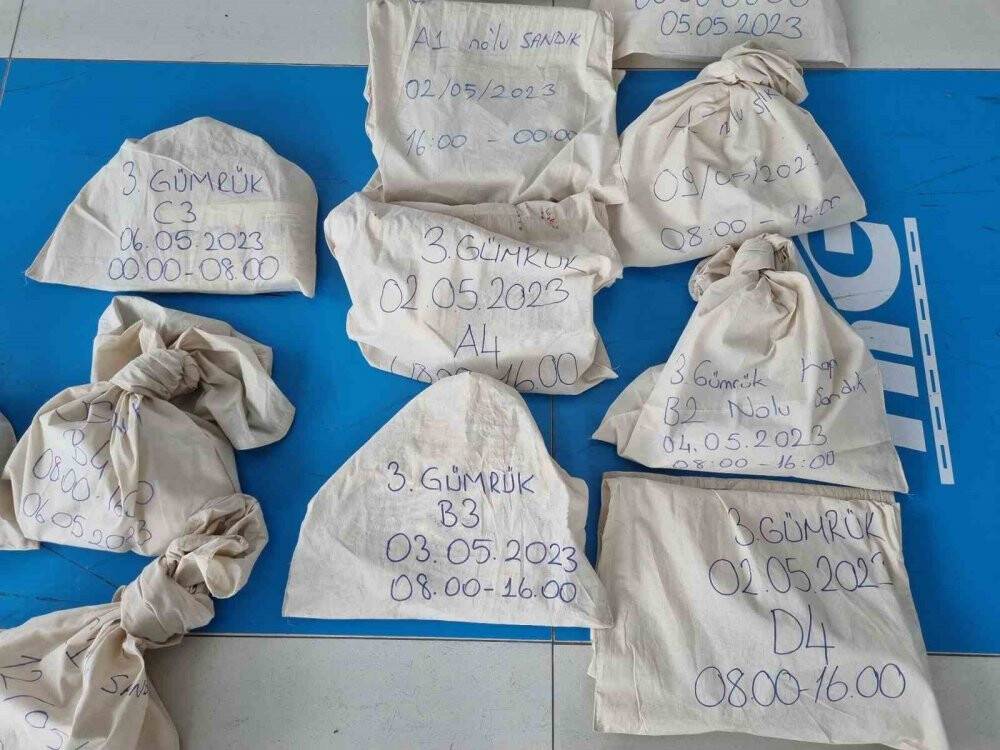 05.05.2023
A1 nolu SANDIK
02/05/2023
16:00 - 00:00
08:00 - 16:00
3. GÜMRÜK
C3
06.05.2023
00.00-08.00
3. GÜMRÜK
02.05.2023
A4
16.00
3. Gümrük
B2 Nolu Sandık
04.05.2023
08:00-16:00
B4
08:00-16:00
06.05.2023
3. GÜMRÜK
B3
03.05.2023
08.00-16.00
3. GÜMRÜK
02.05.2023
D4
08.00-16.00
SANDI
mG